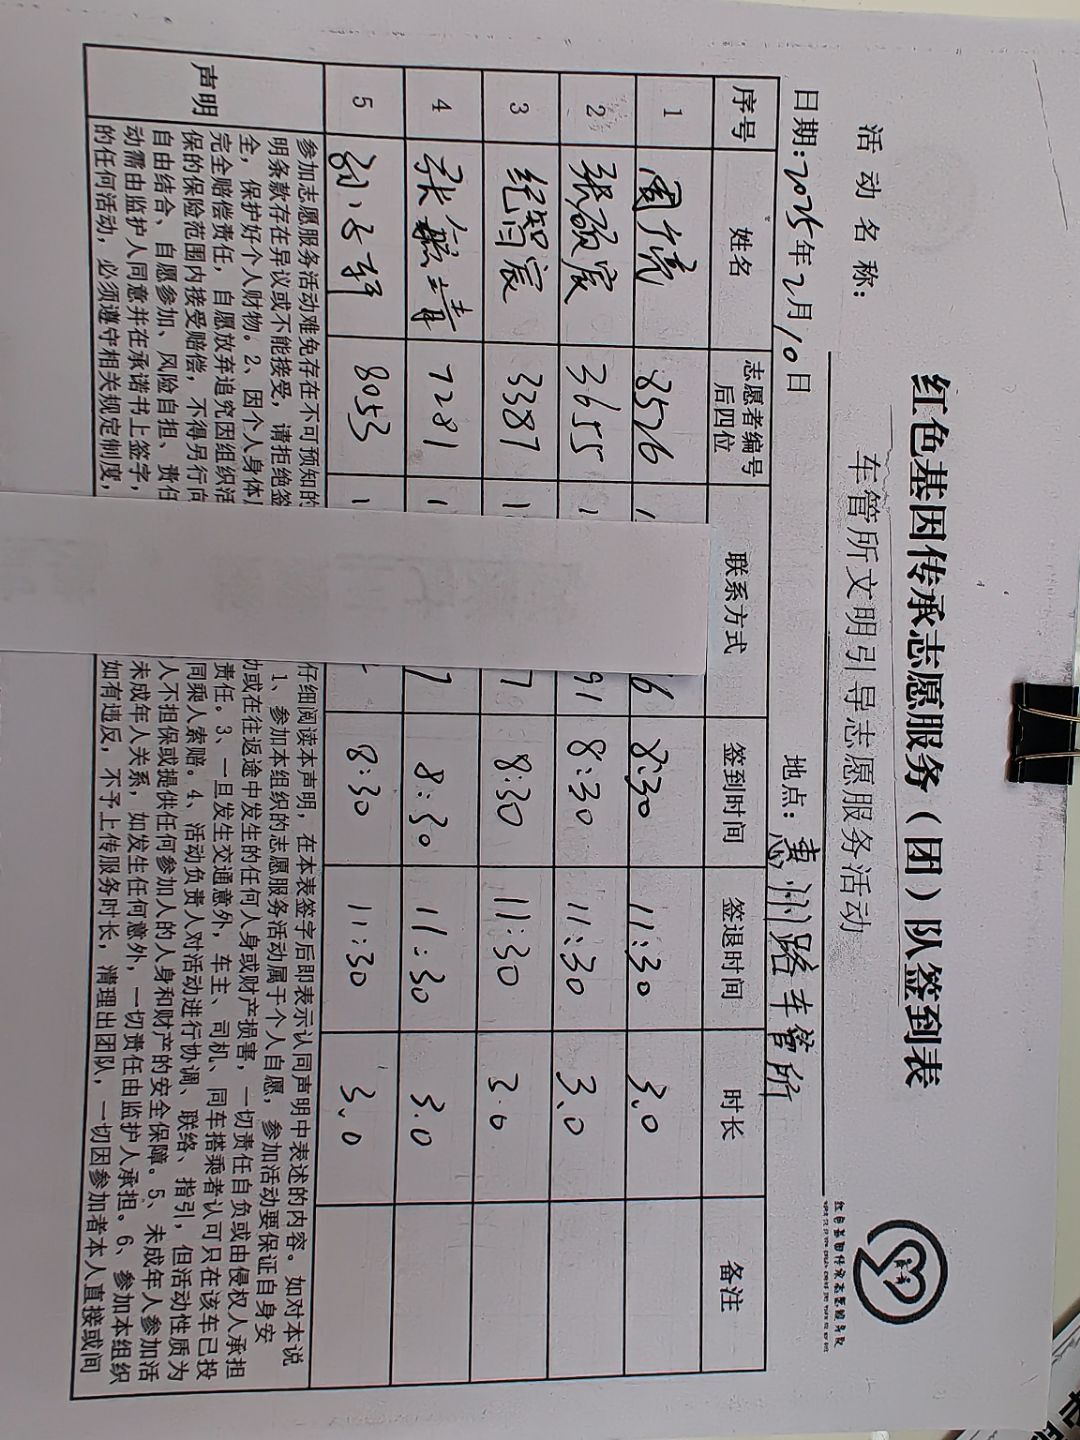 红色基因传承志愿服务（团）队签到表
活动名称： 车管所文明引导志愿服务活动
日期：2025年2月10日 地点：惠州路车管所
序号 姓名 志愿者编号后四位 联系方式 签到时间 签退时间 时长 备注
1 周广亮 8576 1 6 8:30 11:30 3.0
2 张硕宸 3655 1 91 8:30 11:30 3.0
3 纪智宸 3387 1 7 8:30 11:30 3.0
4 张毓青 7281 1 7 8:30 11:30 3.0
5 8053 1 8:30 11:30 3.0
声明
参加志愿服务活动难免存在不可预知的 仔细阅读本声明，在本表签字后即表示认同声明中表述的内容。如对本说
明条款存在异议或不能接受，请拒绝签 1、参加本组织的志愿服务活动属于个人自愿，参加活动要保证自身安
全，保护好个人财物。2、因个人身体 动或在往返途中发生的任何人身或财产损害，一切责任自负或由侵权人承担
完全赔偿责任，自愿放弃追究因组织活 责任。3、一旦发生交通意外，车主、司机、同车搭乘者认可只在该车已投
保的保险范围内接受赔偿，不得另行向 同乘人索赔。4、活动负责人对活动进行协调、联络、指引，但活动性质为
自由结合、自愿参加、风险自担、责任 人不担保或提供任何参加人的人身和财产的安全保障。5、未成年人参加活
动需由监护人同意并在承诺书上签字， 未成年人关系，如发生任何意外，一切责任由监护人承担。6、参加本组织
的任何活动，必须遵守相关规定制度， 如有违反，不予上传服务时长，清理出团队，一切因参加者本人直接或间